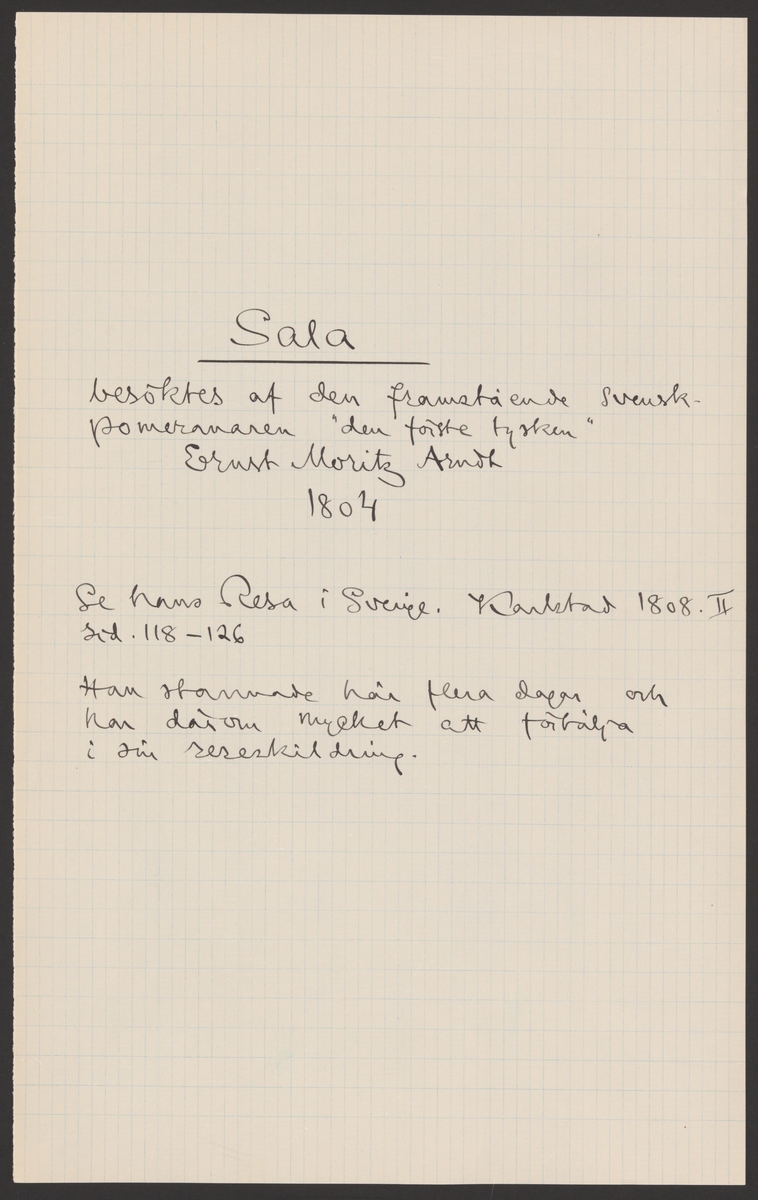 Sala
besöktes af den framstående svensk-
pomeranaren "den förste tysken"
Ernst Moritz Arndt
1804
Se hans Resa i Sverige. Karlstad 1808. II
sid. 118-126
Han stannade här flera dagar och
har därom mycket att förtälja
i sin reseskildring.